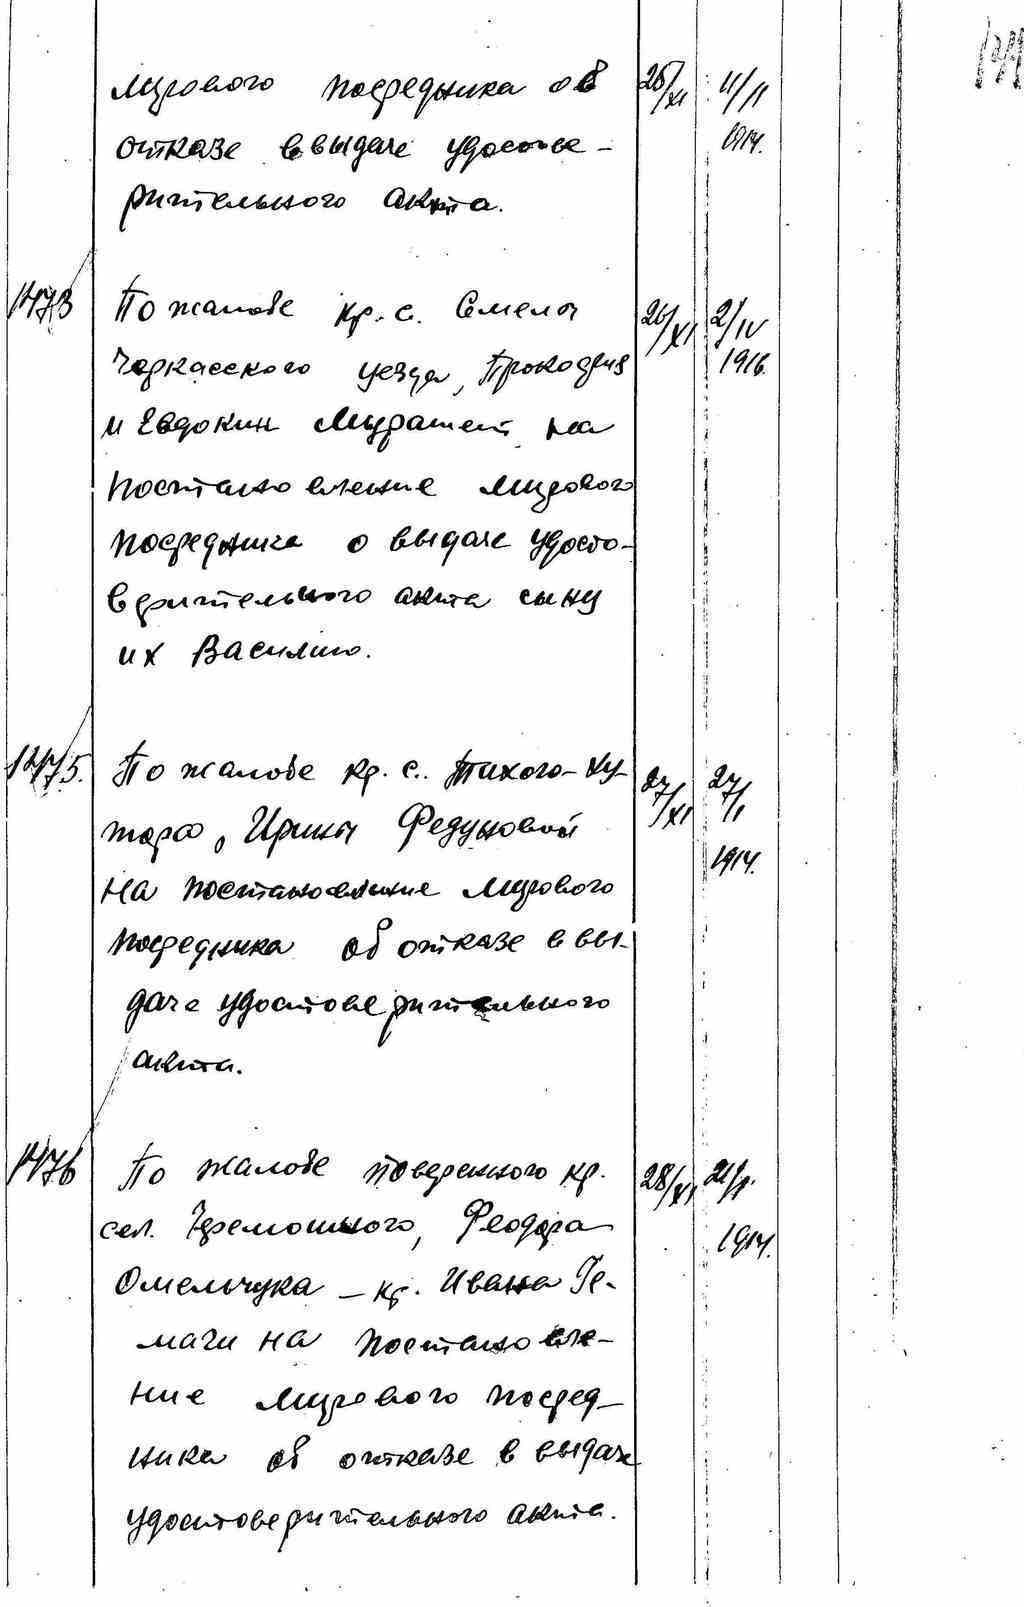 мирового посредника об 26/XI 11/II
отказе в выдаче удостове- 1914.
рительного акта.
1473 По жалобе кр. с. Смелы 26/XI 2/IV
Черкасского уезда, Прокофия 1916.
и Евдокии Мурашей на
постановление мирового
посредника о выдаче удосто-
верительного акта сыну
их Василию.
1475. По жалобе кр. с. Тихого-Ху- 27/XI 27/I
тора, Ирины Федуновой 1914.
на постановление мирового
посредника об отказе в вы-
даче удостоверительного
акта.
1476 По жалобе поверенного кр. 28/XI
сел. Черемошного, Феодора 1914.
Омельчука - кр. Ивана Ге-
мачи на постановле-
ние мирового посред-
ника об отказе в выдаче
удостоверительного акта.